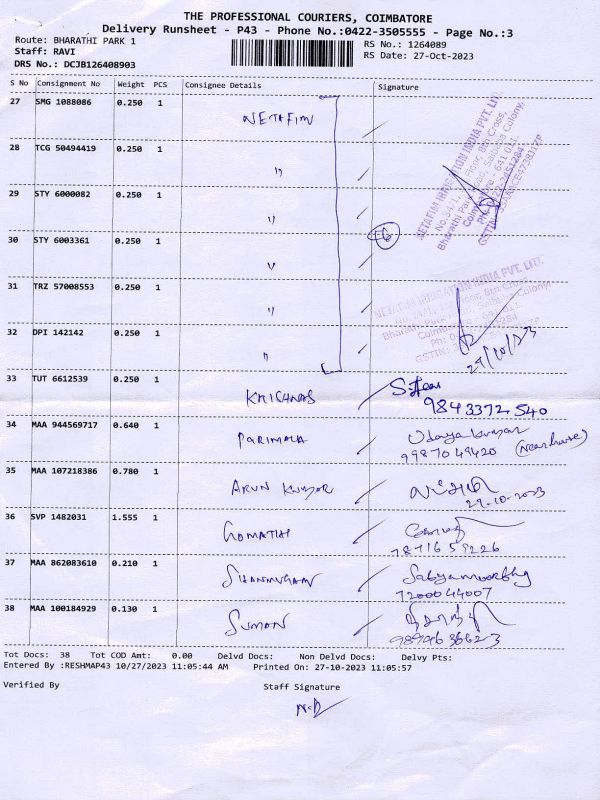 THE PROFESSIONAL COURIERS, COIMBATORE
Delivery Runsheet - P43 - Phone No.:0422-3505555 - Page No.:3
Route: BHARATHI PARK 1
RS No.: 1264089
Staff: RAVI
RS Date: 27-Oct-2023
DRS No.: DCJB126408903
S No Consignment No Weight PCS Consignee Details Signature
27 SMG 1088086 0.250 1 NETAFIM
28 TCG 50494419 0.250 1 "
29 STY 6000082 0.250 1 "
30 STY 6003361 0.250 1 " 6
31 TRZ 57008553 0.250 1 "
32 DPI 142142 0.250 1 "
NETAFIM IRRIGATION INDIA PVT. LTD.
33 TUT 6612539 0.250 1 KRISHNAS
9843372540
34 MAA 944569717 0.640 1 PARIMALA Udayakumar
9987049420 (Near house)
35 MAA 107218386 0.780 1 ARUN KUMAR
36 SVP 1482031 1.555 1 GOMATHI
7871659226
37 MAA 862083610 0.210 1 SHANMUGAM Sathyamoorthy
7200044007
38 MAA 100184929 0.130 1 SUMAN
Tot Docs: 38 Tot COD Amt: 0.00 Delvd Docs: Non Delvd Docs: Delvy Pts:
Entered By :RESHMAP43 10/27/2023 11:05:44 AM Printed On: 27-10-2023 11:05:57
Verified By Staff Signature